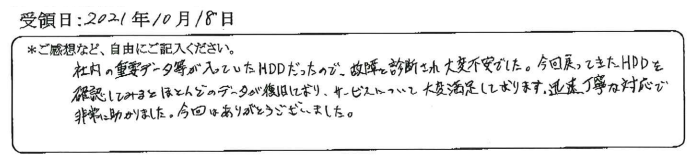 受領日:2021年10月18日
*ご感想など、自由にご記入ください。
社内の重要データ等が入っていたHDDだったので、故障と診断され大変不安でした。今回戻ってきたHDDを
確認してみるとほとんどのデータが復旧しており、サービスについて大変満足しております。迅速丁寧な対応で
非常に助かりました。今回はありがとうございました。